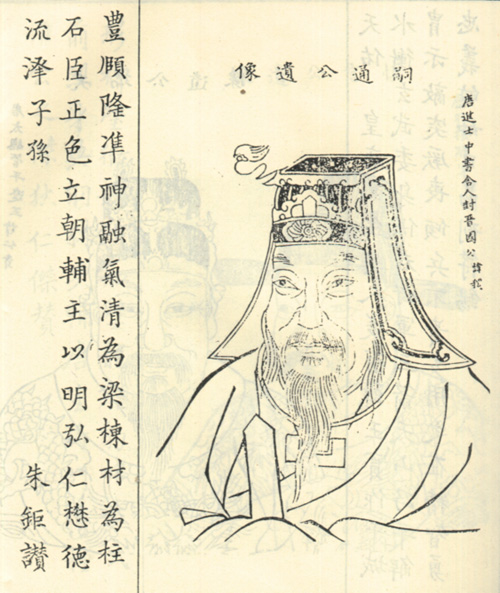 唐進士中書令人封晉國公 諱
嗣通公遺像
豐頤隆凖神融氣清為梁棟材為柱
石臣正色立朝輔主以明弘仁懋德
流泽子孫 朱鉅讚